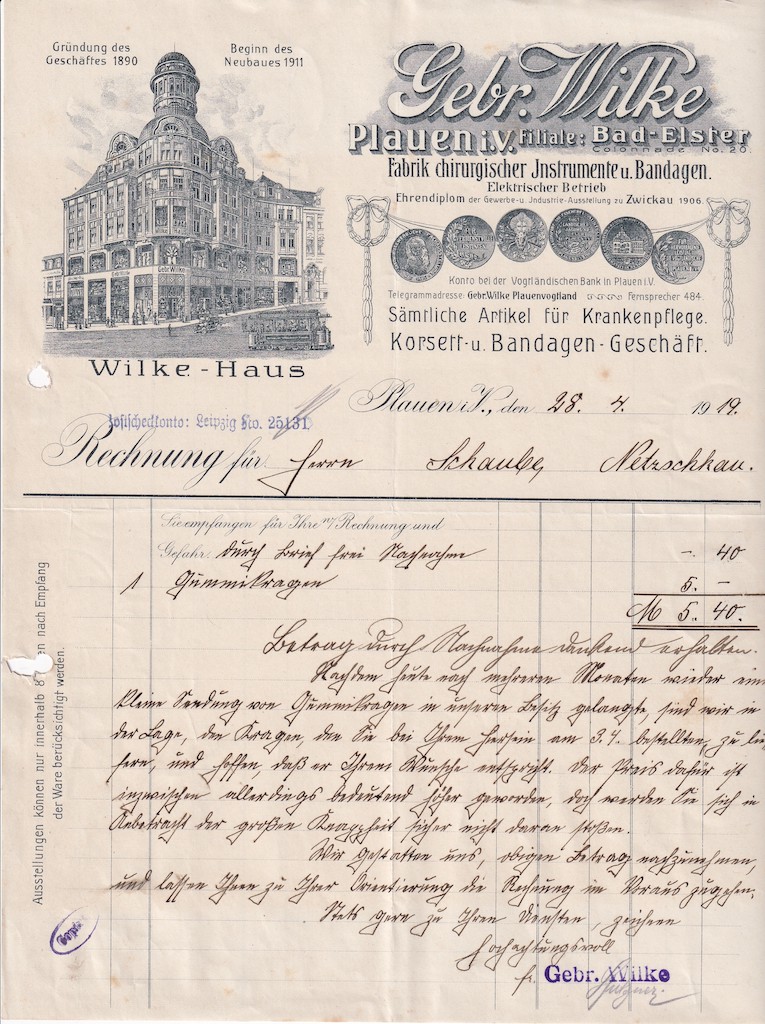 Gründung des
Geschäftes 1890
Beginn des
Neubaues 1911
Gebr. Wilke
Wilke-Haus
Gebr. Wilke
Plauen i.V. Filiale: Bad-Elster
Colonnade No. 20.
Fabrik chirurgischer Jnstrumente u. Bandagen.
Elektrischer Betrieb
Ehrendiplom der Gewerbe- u. Jndustrie-Ausstellung zu Zwickau 1906.
Konto bei der Vogtländischen Bank in Plauen i.V.
Telegrammadresse: Gebr. Wilke Plauenvogtland Fernsprecher 484.
Sämtliche Artikel für Krankenpflege.
Korsett- u. Bandagen-Geschäft.
Plauen i. V., den 28. 4. 1919.
Postscheckkonto: Leipzig No. 25131
Rechnung für Herrn Schaube, Netzschkau.
Sie empfangen für Ihre w/ Rechnung und
Gefahr durch Brief frei Nachnahme -. 40
1 Gummikragen 5. -
M 5. 40.
Betrag durch Nachnahme dankend erhalten.
Nachdem heute nach mehreren Monaten wieder eine
kleine Sendung von Gummikragen in unseren Besitz gelangte, sind wir in
der Lage, den Kragen, den Sie bei Ihrem Hiersein am 3.4. bestellten, zu lie-
fern, und hoffen, daß er Ihrem Wunsche entspricht. Der Preis dafür ist
inzwischen allerdings bedeutend höher geworden, doch werden Sie sich in
Anbetracht der großen Knappheit sicher nicht daran stoßen.
Wir gestatten uns, obigen Betrag nachzunehmen,
und lassen Ihnen zu Ihrer Orientierung die Rechnung im Voraus zugehen.
Stets gern zu Ihren Diensten, zeichnen
Hochachtungsvoll
fr. Gebr. Wilke
Ausstellungen können nur innerhalb 8 nach Empfang
der Ware berücksichtigt werden.